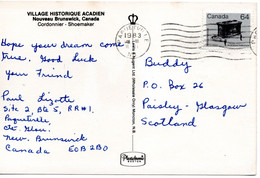 VILLAGE HISTORIQUE ACADIEN
Nouveau Brunswick, Canada
Cordonnier - Shoemaker
1983
Canada 64
Hope your dream come
true. Good Luck
your Friend
Paul Lizotte
Site 2, Bte 5, RR#1,
Cte. Glou.
New. Brunswick
Canada E0B 2B0
Buddy
P.O. Box 26
Paisley - Glasgow
Scotland